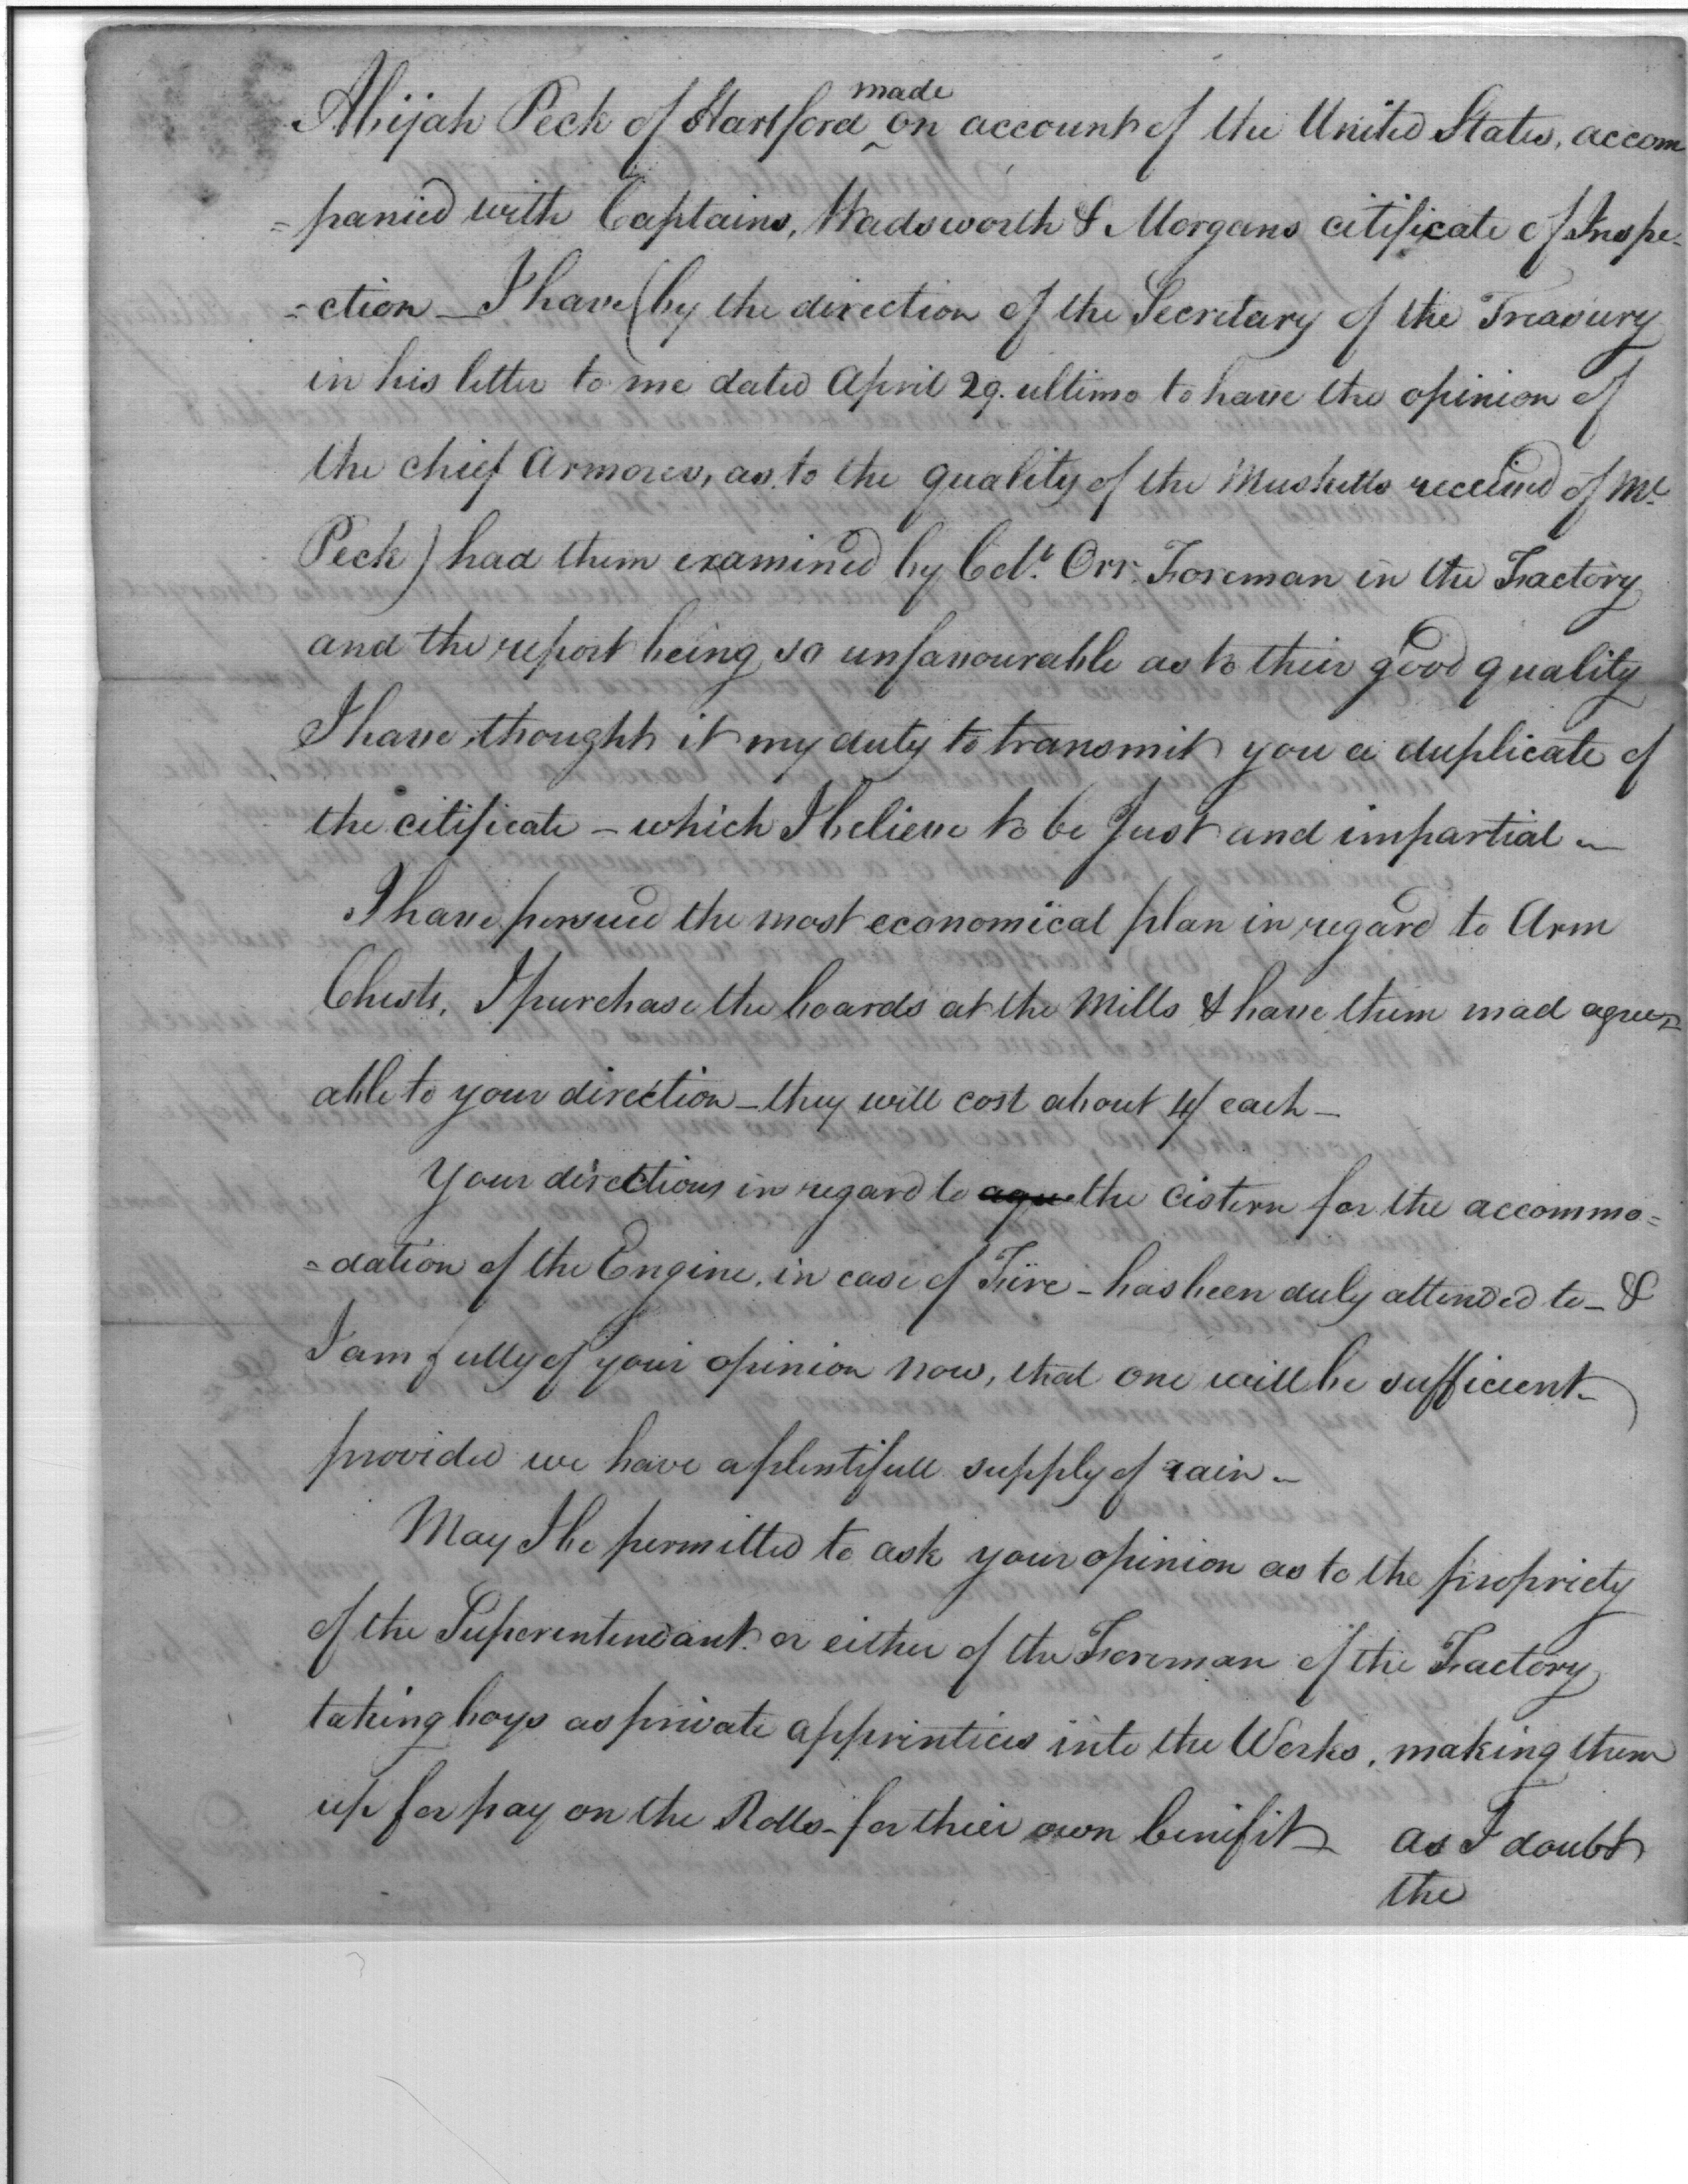 made
Abijah Peck of Hartford ^ on account of the United States, accom
=panied with Captains, Wadsworth & Morgans citificate of Inspe-
=ction — I have (by the direction of the Secretary of the Treasury
in his letter to me dated April 29. ultimo to have the opinion of
the chief Armorer, as to the quality of the Musketts received of Mr.
Peck) had them examined by Colt. Orr. Foreman in the Factory
and the report being so unfavourable as to their good quality
I have thought it my duty to transmit you a duplicate of
the citificate – which I believe to be Just and impartial –
I have persued the most economical plan in regard to Arm
Chests, I purchase the boards at the Mills & have them mad agree=
able to your direction – they will cost about 4/ each –
Your directions in regard to ague the cistern for the accommo=
=dation of the Engine, in case of Fire – has been duly attended to – &
I am fully of your opinion now, that one will be sufficient –
provided we have a plentifull supply of rain –
May I be permitted to ask your opinion as to the propriety
of the Superentendant or either of the Foreman of the Factory
taking boys as private apprintices into the Works, making them
up for pay on the Rolls – for thier own benifit – as I doubt
the